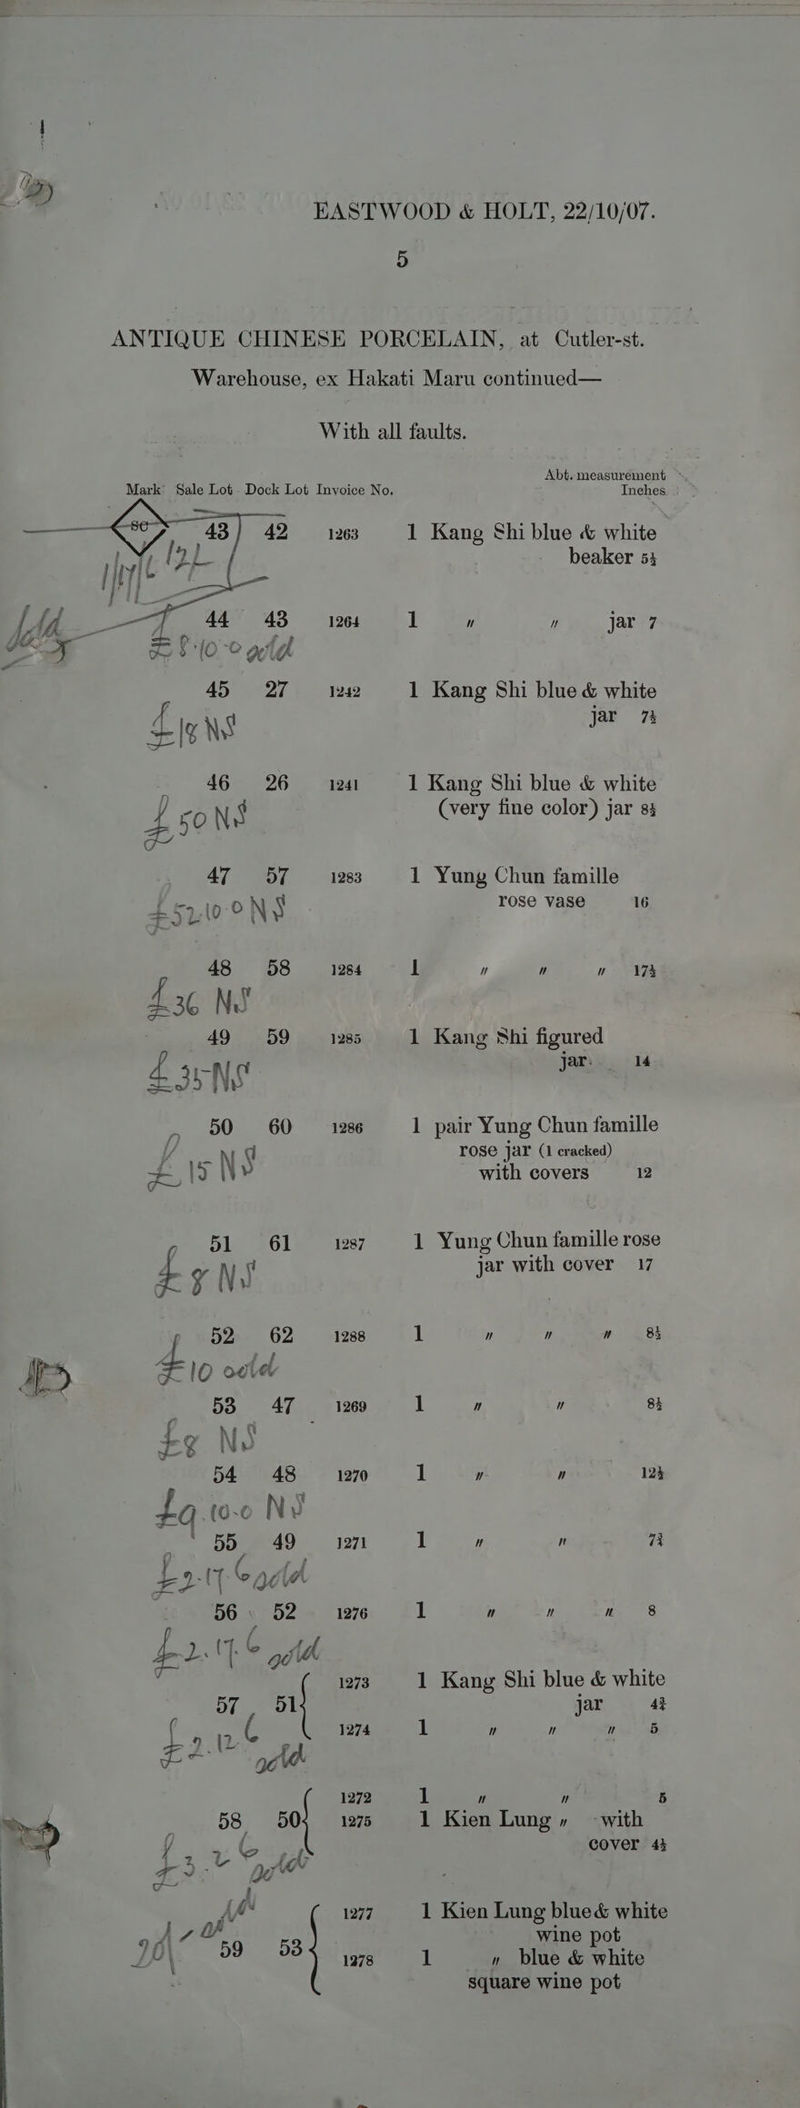 EASTWOOD & HOLT, 22/10/07.
5
ANTIQUE CHINESE PORCELAIN, at Cutler-st.
Warehouse, ex Hakati Maru continued—
With all faults.
Abt. measurement
Mark Sale Lot Dock Lot Invoice No. Inches
SC 43 42 1263 1 Kang Shi blue & white
beaker 5½
44 43 1264 1 " " jar 7
£8-10-0 gold
45 27 1242 1 Kang Shi blue & white
£18 NS jar 7½
46 26 1241 1 Kang Shi blue & white
£50 NS (very fine color) jar 8½
47 57 1283 1 Yung Chun famille
£52.10.0 NS rose vase 16
48 58 1284 1 " " " 17½
£36 NS
49 59 1285 1 Kang Shi figured
£35 NS jar 14
50 60 1286 1 pair Yung Chun famille
rose jar (1 cracked)
£15 NS with covers 12
51 61 1287 1 Yung Chun famille rose
£8 NS jar with cover 17
52 62 1288 1 " " " 8½
£10 gold
53 47 1269 1 " " 8½
£8 NS
54 48 1270 1 " " 12½
£9.10.0 NS
55 49 1271 1 " " 7¾
£2.17.6 gold
56 52 1276 1 " " " 8
£2.17.6 gold
1273 1 Kang Shi blue & white
57 51 jar 4¾
1274 1 " " " 5
£2.12.6 gold
1272 1 " " 5
58 50 1275 1 Kien Lung " with
cover 4½
gold
1277 1 Kien Lung blue & white
wine pot
59 53
1278 1 " blue & white
square wine pot